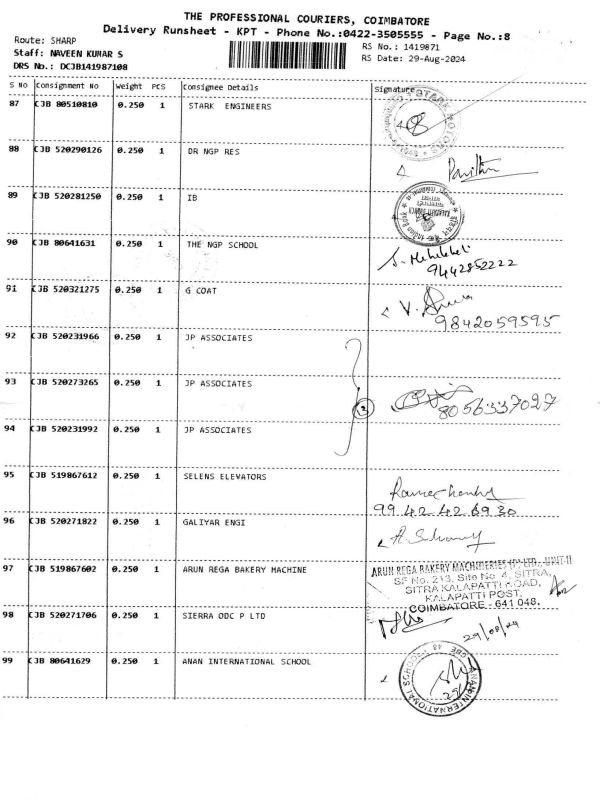 THE PROFESSIONAL COURIERS, COIMBATORE
Delivery Runsheet - KPT - Phone No.:0422-3505555 - Page No.:8
Route: SHARP
RS No.: 1419871
Staff: NAVEEN KUMAR S
RS Date: 29-Aug-2024
DRS No.: DCJB141987108
S No Consignment No Weight PCS Consignee Details Signature
87 CJB 80510810 0.250 1 STARK ENGINEERS
88 CJB 520290126 0.250 1 DR NGP RES
89 CJB 520281250 0.250 1 IB
Indian Bank
90 CJB 80641631 0.250 1 THE NGP SCHOOL
9442852222
91 CJB 520321275 0.250 1 G COAT
9842059595
92 CJB 520231966 0.250 1 JP ASSOCIATES
93 CJB 520273265 0.250 1 JP ASSOCIATES
8056337027
94 CJB 520231992 0.250 1 JP ASSOCIATES
95 CJB 519867612 0.250 1 SELENS ELEVATORS
99 42 42 69 30
96 CJB 520271822 0.250 1 GALIYAR ENGI
97 CJB 519867602 0.250 1 ARUN REGA BAKERY MACHINE
ARUN REGA BAKERY MACHINERIES (P) LTD., UNIT-II
SF No. 213, Site No 4, SITRA,
SITRA KALAPATTI ROAD,
KALAPATTI POST,
COIMBATORE - 641 048.
98 CJB 520271706 0.250 1 SIERRA ODC P LTD
29/08/24
99 CJB 80641629 0.250 1 ANAN INTERNATIONAL SCHOOL